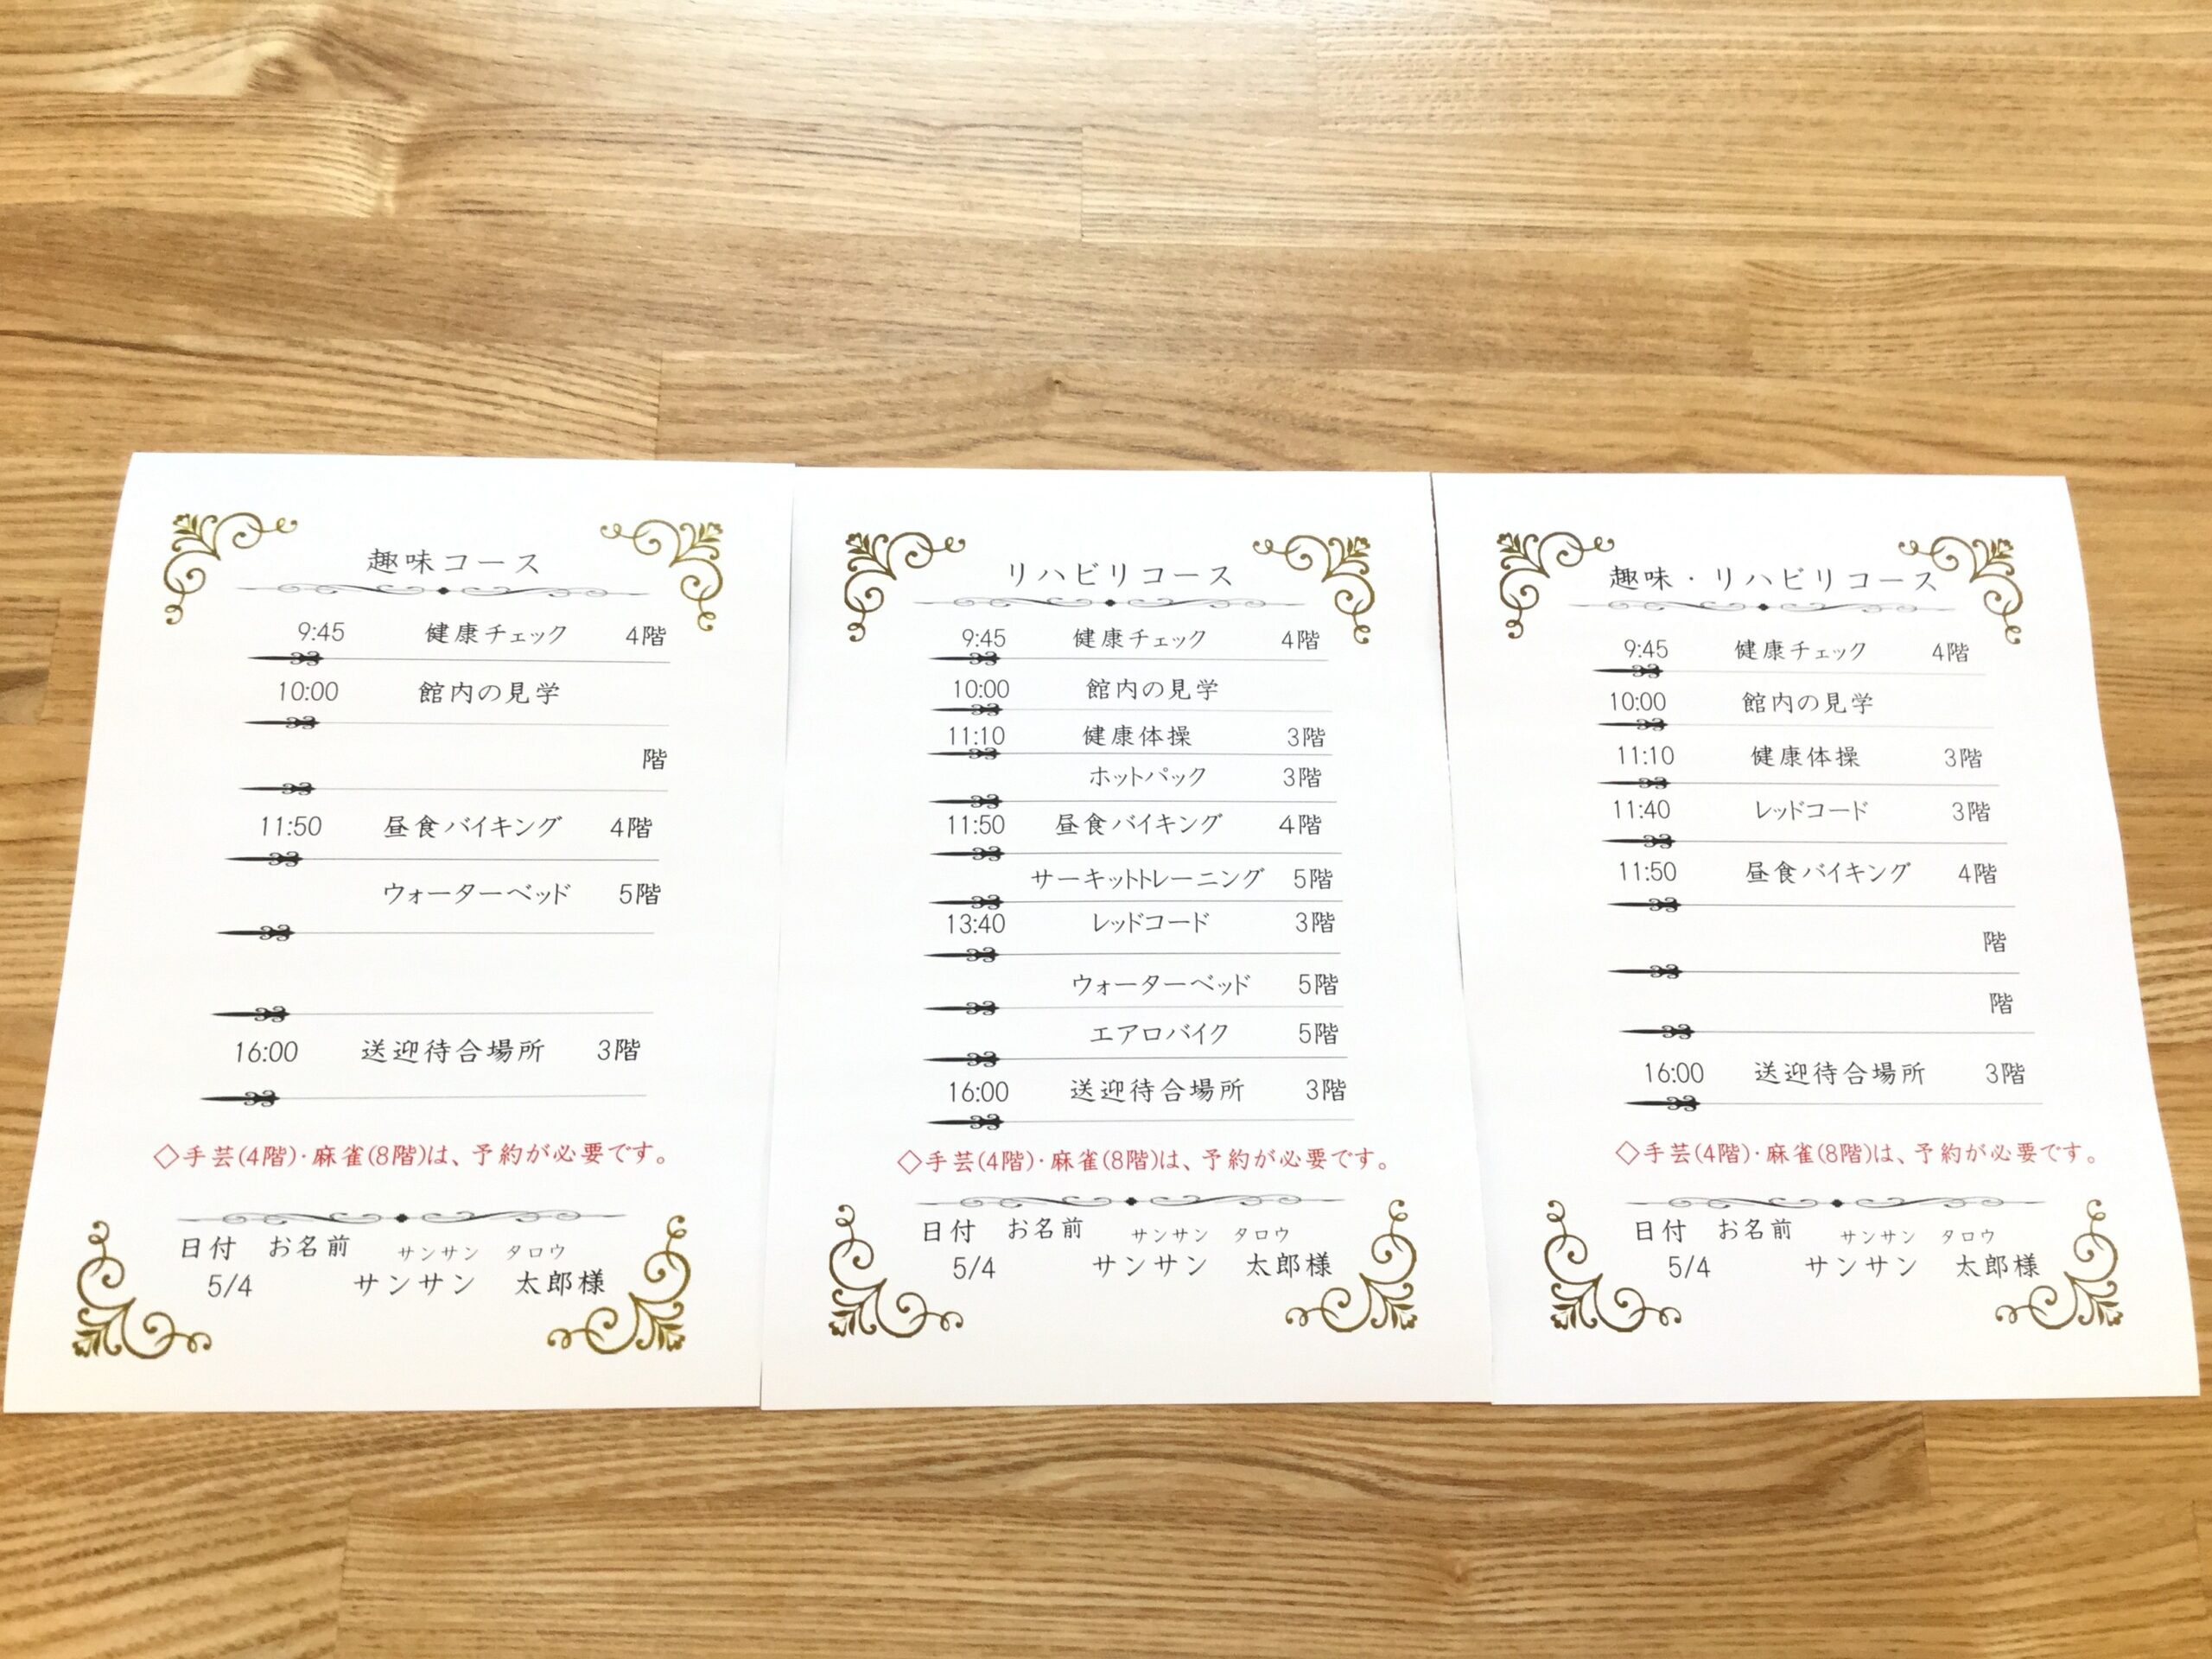 趣味コース
9:45 健康チェック 4階
10:00 館内の見学
階
11:50 昼食バイキング 4階
ウォーターベッド 5階
16:00 送迎待合場所 3階
◇手芸(4階)・麻雀(8階)は、予約が必要です。
日付 お名前 サンサン タロウ
5/4 サンサン 太郎様
リハビリコース
9:45 健康チェック 4階
10:00 館内の見学
11:10 健康体操 3階
ホットパック 3階
11:50 昼食バイキング 4階
サーキットトレーニング 5階
13:40 レッドコード 3階
ウォーターベッド 5階
エアロバイク 5階
16:00 送迎待合場所 3階
◇手芸(4階)・麻雀(8階)は、予約が必要です。
日付 お名前 サンサン タロウ
5/4 サンサン 太郎様
趣味・リハビリコース
9:45 健康チェック 4階
10:00 館内の見学
11:10 健康体操 3階
11:40 レッドコード 3階
11:50 昼食バイキング 4階
階
階
16:00 送迎待合場所 3階
◇手芸(4階)・麻雀(8階)は、予約が必要です。
日付 お名前 サンサン タロウ
5/4 サンサン 太郎様